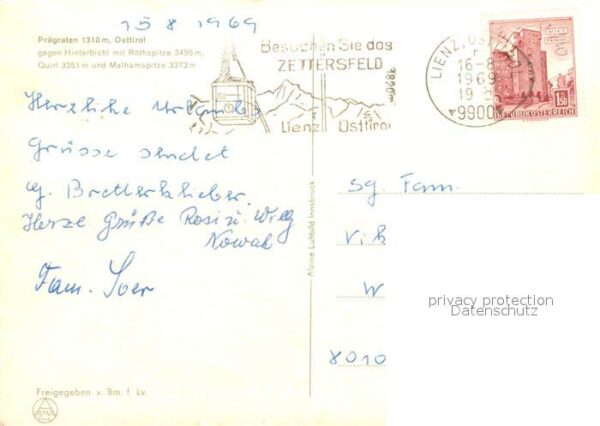 15 8 1969
Prägraten 1310 m, Osttirol
gegen Hinterbichl mit Röthspitze 3495 m,
Quirl 3251 m und Malhamspitze 3373 m
Besuchen Sie das
ZETTERSFELD
Lienz Osttirol
LIENZ, OSTTIROL
16-8
1969 19
9900
1.50
REPUBLIK ÖSTERREICH
Herzliche Urlaubs
Grüsse sendet
Herzl. Grüße Rosi u. Willy
Nowak
Fam.
Sg. Fam.
W
8010
Alpine Luftbild Innsbruck
privacy protection
Datenschutz
Freigegeben v. Bm. f. Lv.